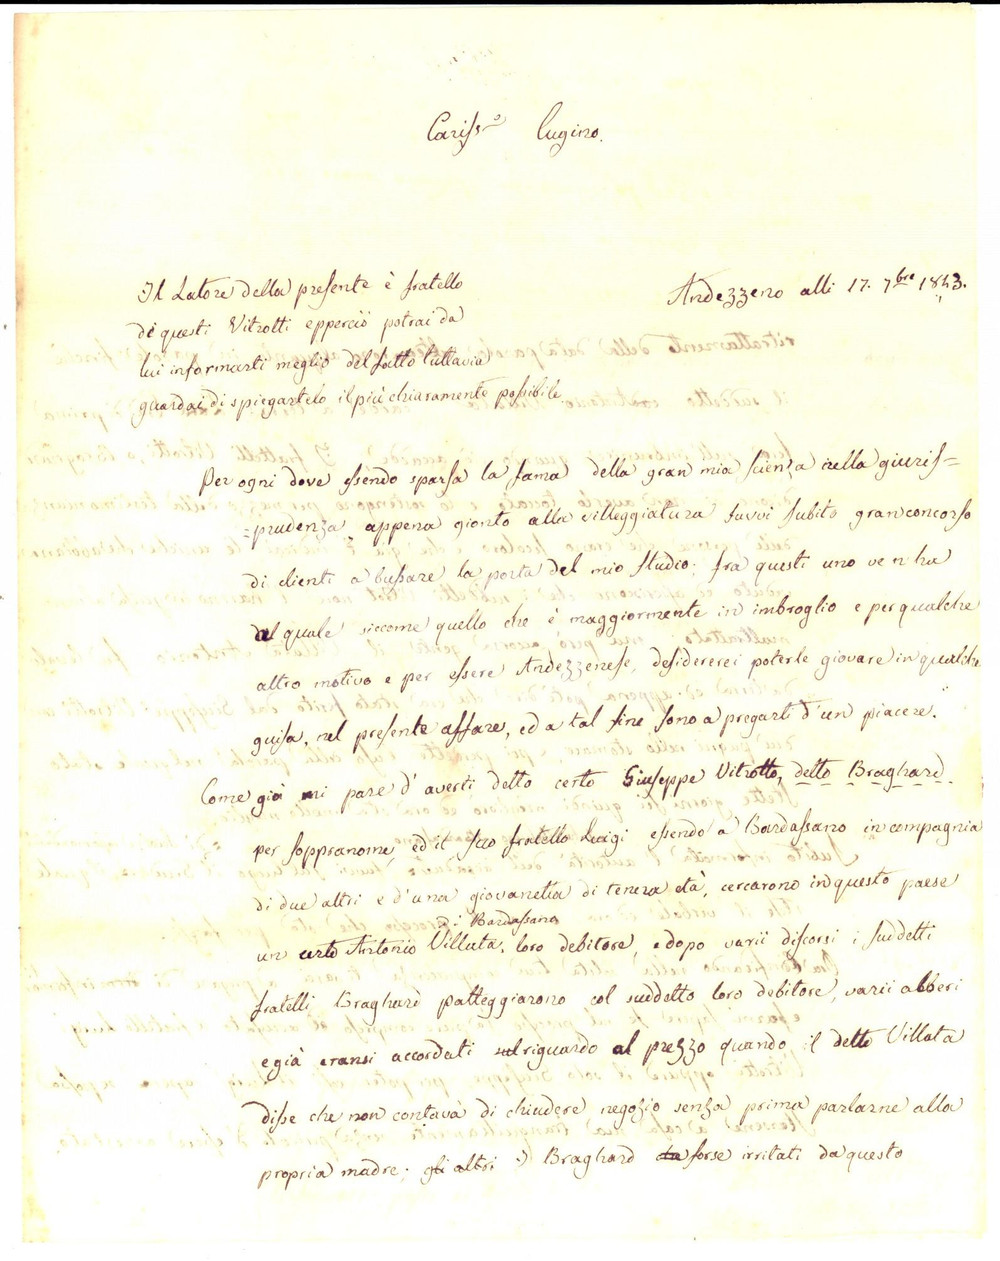 Cariss.o Cugino.
Andezzeno alli 17. 7bre 1843.
Il Latore della presente è fratello
di questi Vitrotti epperciò potrai da
lui informarti meglio del fatto tuttavia
guardai di spiegartelo il più chiaramente possibile.
Per ogni dove essendo sparsa la fama della gran mia scienza nella giuris=
=prudenza, appena gionto alla villeggiatura fuvvi subito gran concorso
di clienti a bussare la porta del mio studio; fra questi uno ve n'ha
al quale siccome quello che è maggiormente in imbroglio e per qualche
altro motivo e per essere Andezzenese, desidererei poterle giovare in qualche
guisa, nel presente affare, ed a tal fine sono a pregarti d'un piacere.
Come già mi pare d'averti detto certo Giuseppe Vitrotto, detto Braghard
per soppranome, ed il suo fratello Luigi essendo a Bardassano in compagnia
di due altri e d'una giovanetta di tenera età, cercarono in questo paese
di Bardassano
un certo Antonio Villata, loro debitore, e dopo varii discorsi i suddetti
fratelli Braghard patteggiarono col suddetto loro debitore, varii alberi
e già eransi accordati sul riguardo al prezzo quando il detto Villata
disse che non contava di chiudere negozio senza prima parlarne alla
propria madre; gli altri Braghard forse irritati da questo